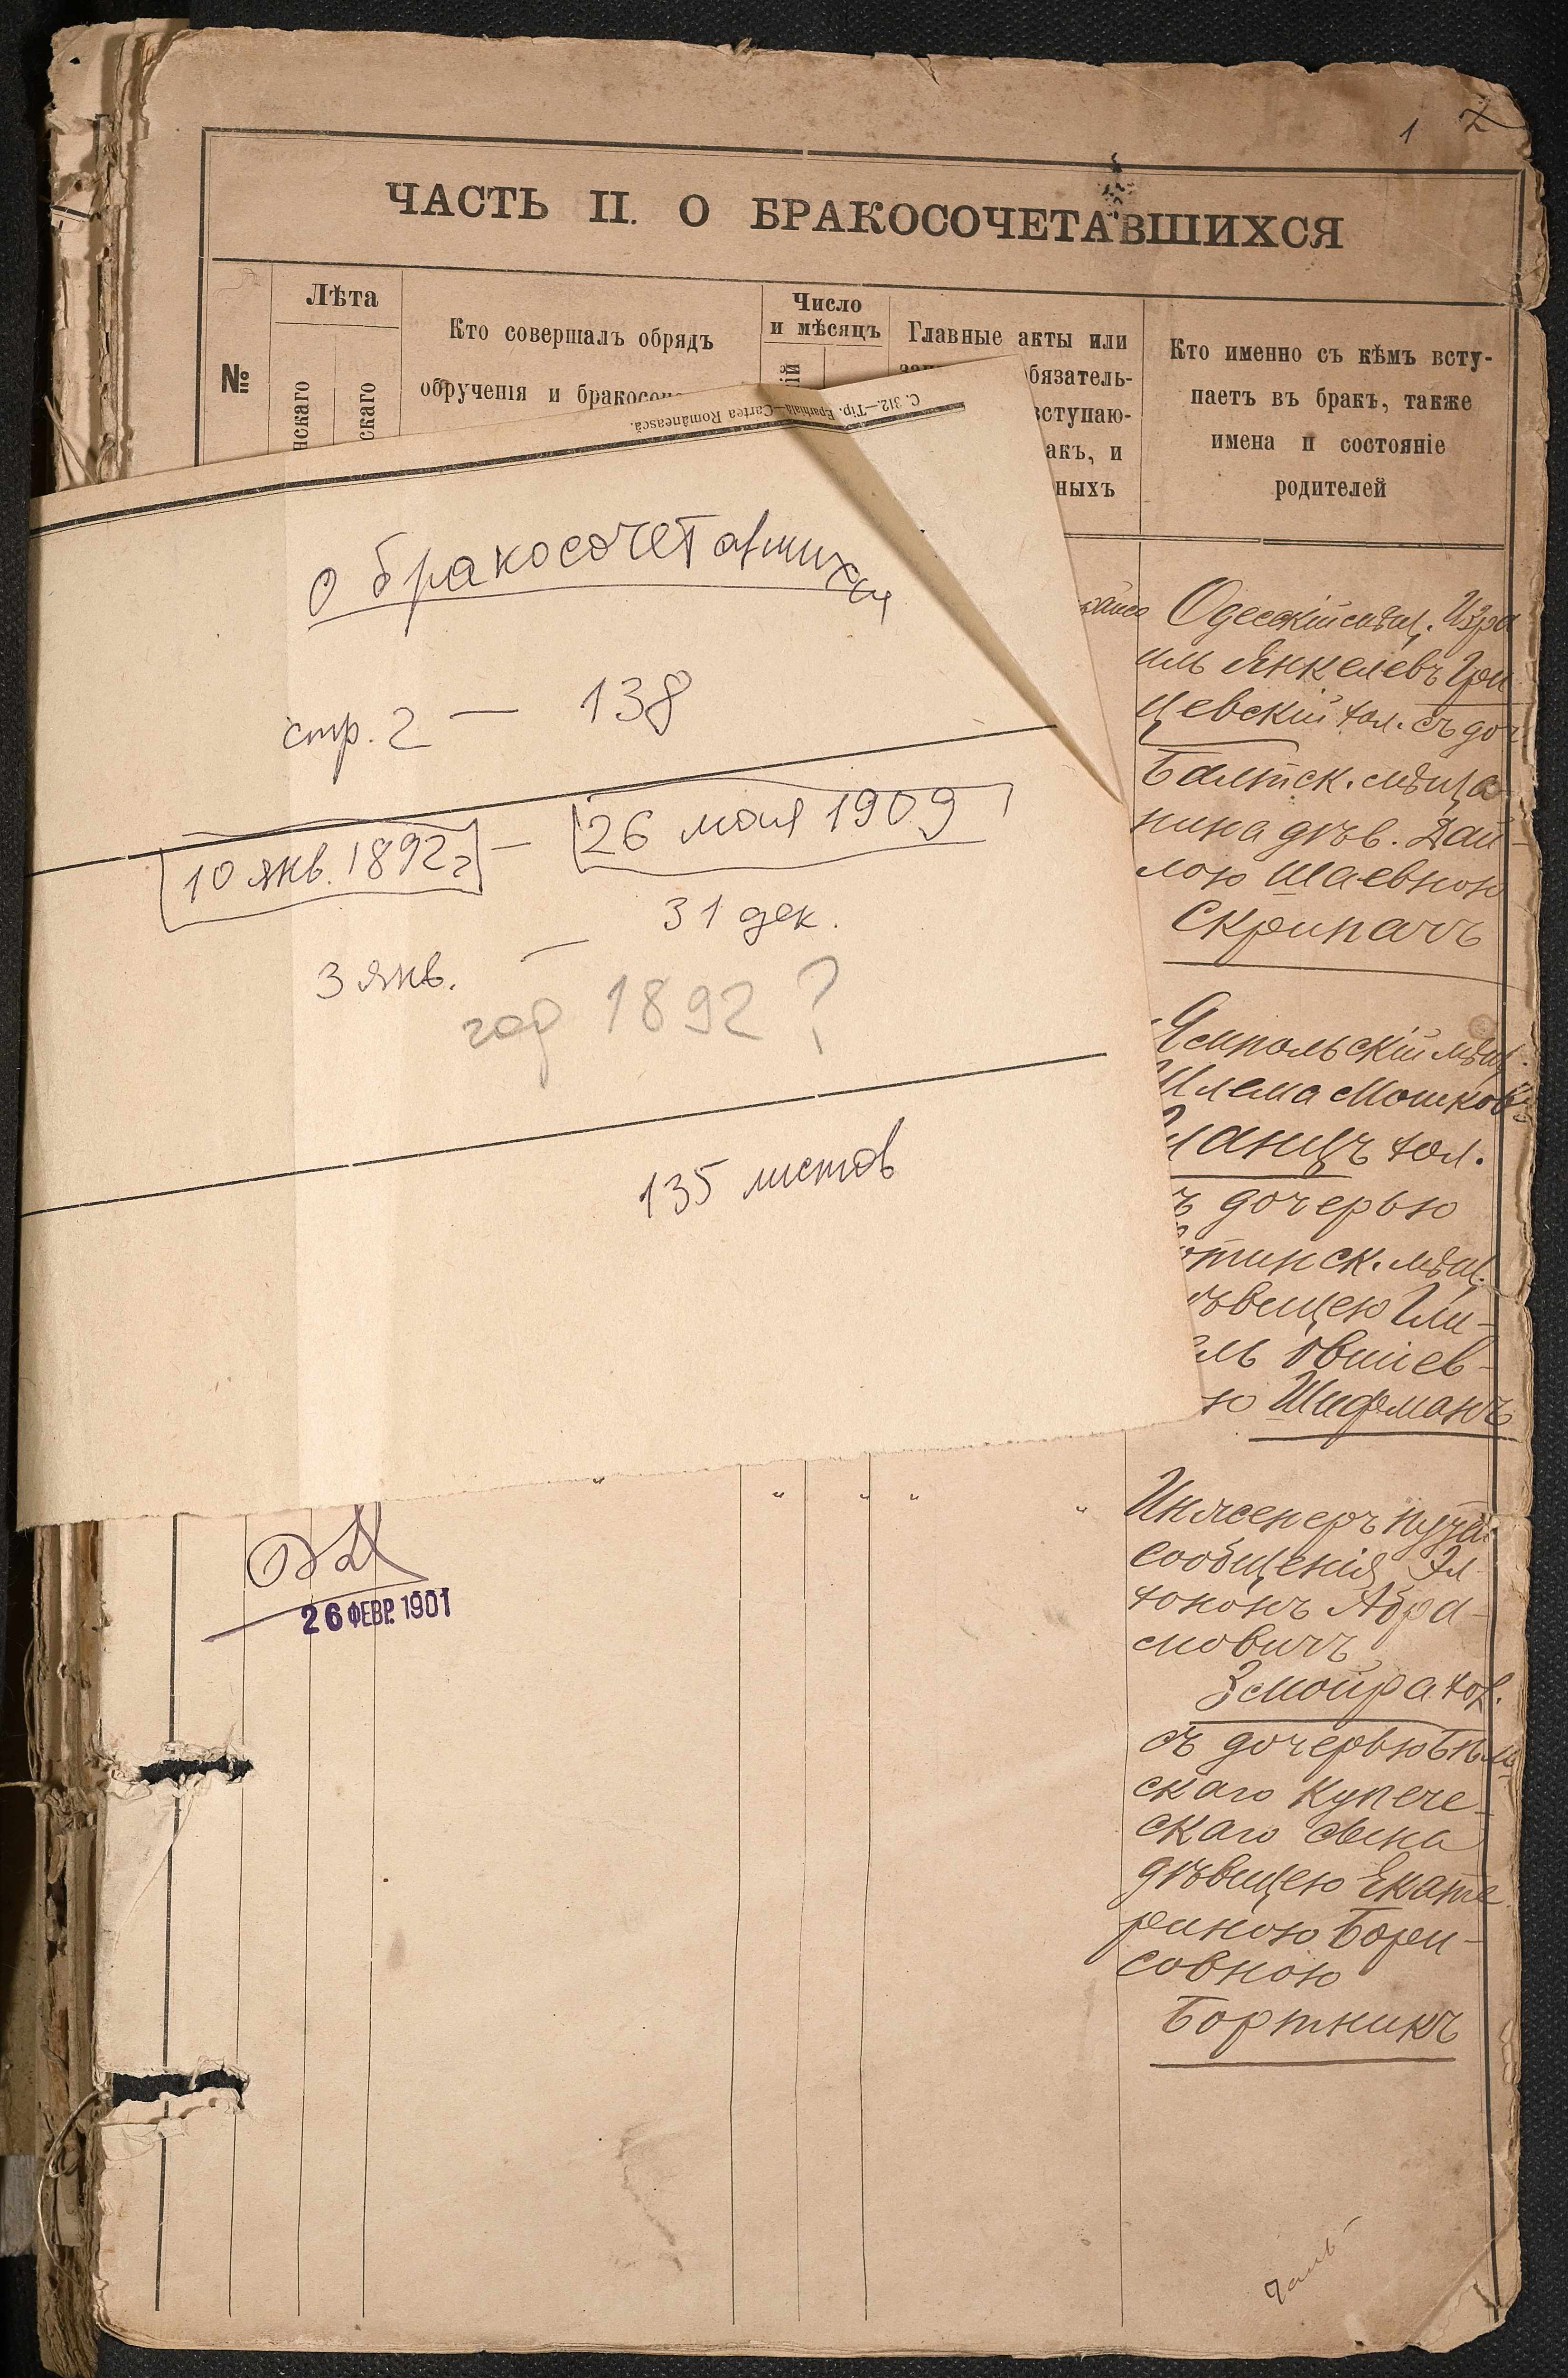 1 2
ЧАСТЬ II. О БРАКОСОЧЕТАВШИХСЯ
№
Лѣта
нскаго
скаго
Кто совершалъ обрядъ
обрученія и бракосоч
Число
и мѣсяцъ
ій
Главные акты или
бязатель-
вступаю-
акъ, и
ныхъ
Кто именно съ кѣмъ всту-
паетъ въ бракъ, также
имена и состояніе
родителей
С. 312.—Tip. Eparhială—Cartea Românească.
о бракосочетавшихся
стр. 2 — 138
10 янв. 1892 г — 26 мая 1909
3 янв. — 31 дек.
год 1892?
135 листов
Одесскій мѣщ. Изра
иль Янкелевъ Гри
цевскій хол. съ доч
Балтск. мѣща-
нина дѣв.
лою Шаевною
Скрипачъ
Ямпольскій мѣщ.
Шлема Мошков
ланцъ хол.
ъ дочерью
отинск. мѣщ.
ѣвицею Гли-
ль Овшіев-
ю Шифманъ
Инженеръ путей
сообщенія
Абра-
мовичъ
Змойра хол.
съ дочерью Бѣль
скаго купече-
скаго сына
дѣвицею Екате
риною Бори-
совною
Бортникъ
26 ФЕВР. 1901